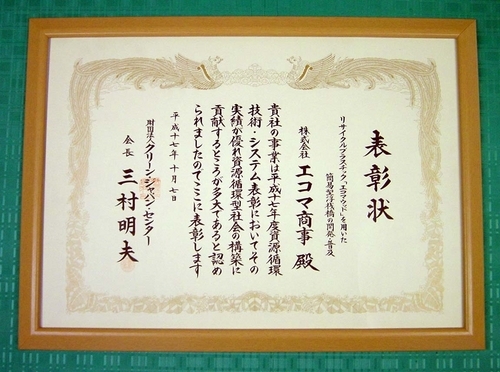 表彰状
リサイクルプラスチック「エコマウッド」を用いた
簡易型浮桟橋の開発・普及
株式会社 エコマ商事 殿
貴社の事業は平成十七年度資源循環
技術・システム表彰においてその
実績が優れ資源循環型社会の構築に
貢献するところが多大であると認め
られましたのでここに表彰します
平成十七年十月七日
財団法人クリーン・ジャパン・センター
会長 三村明夫